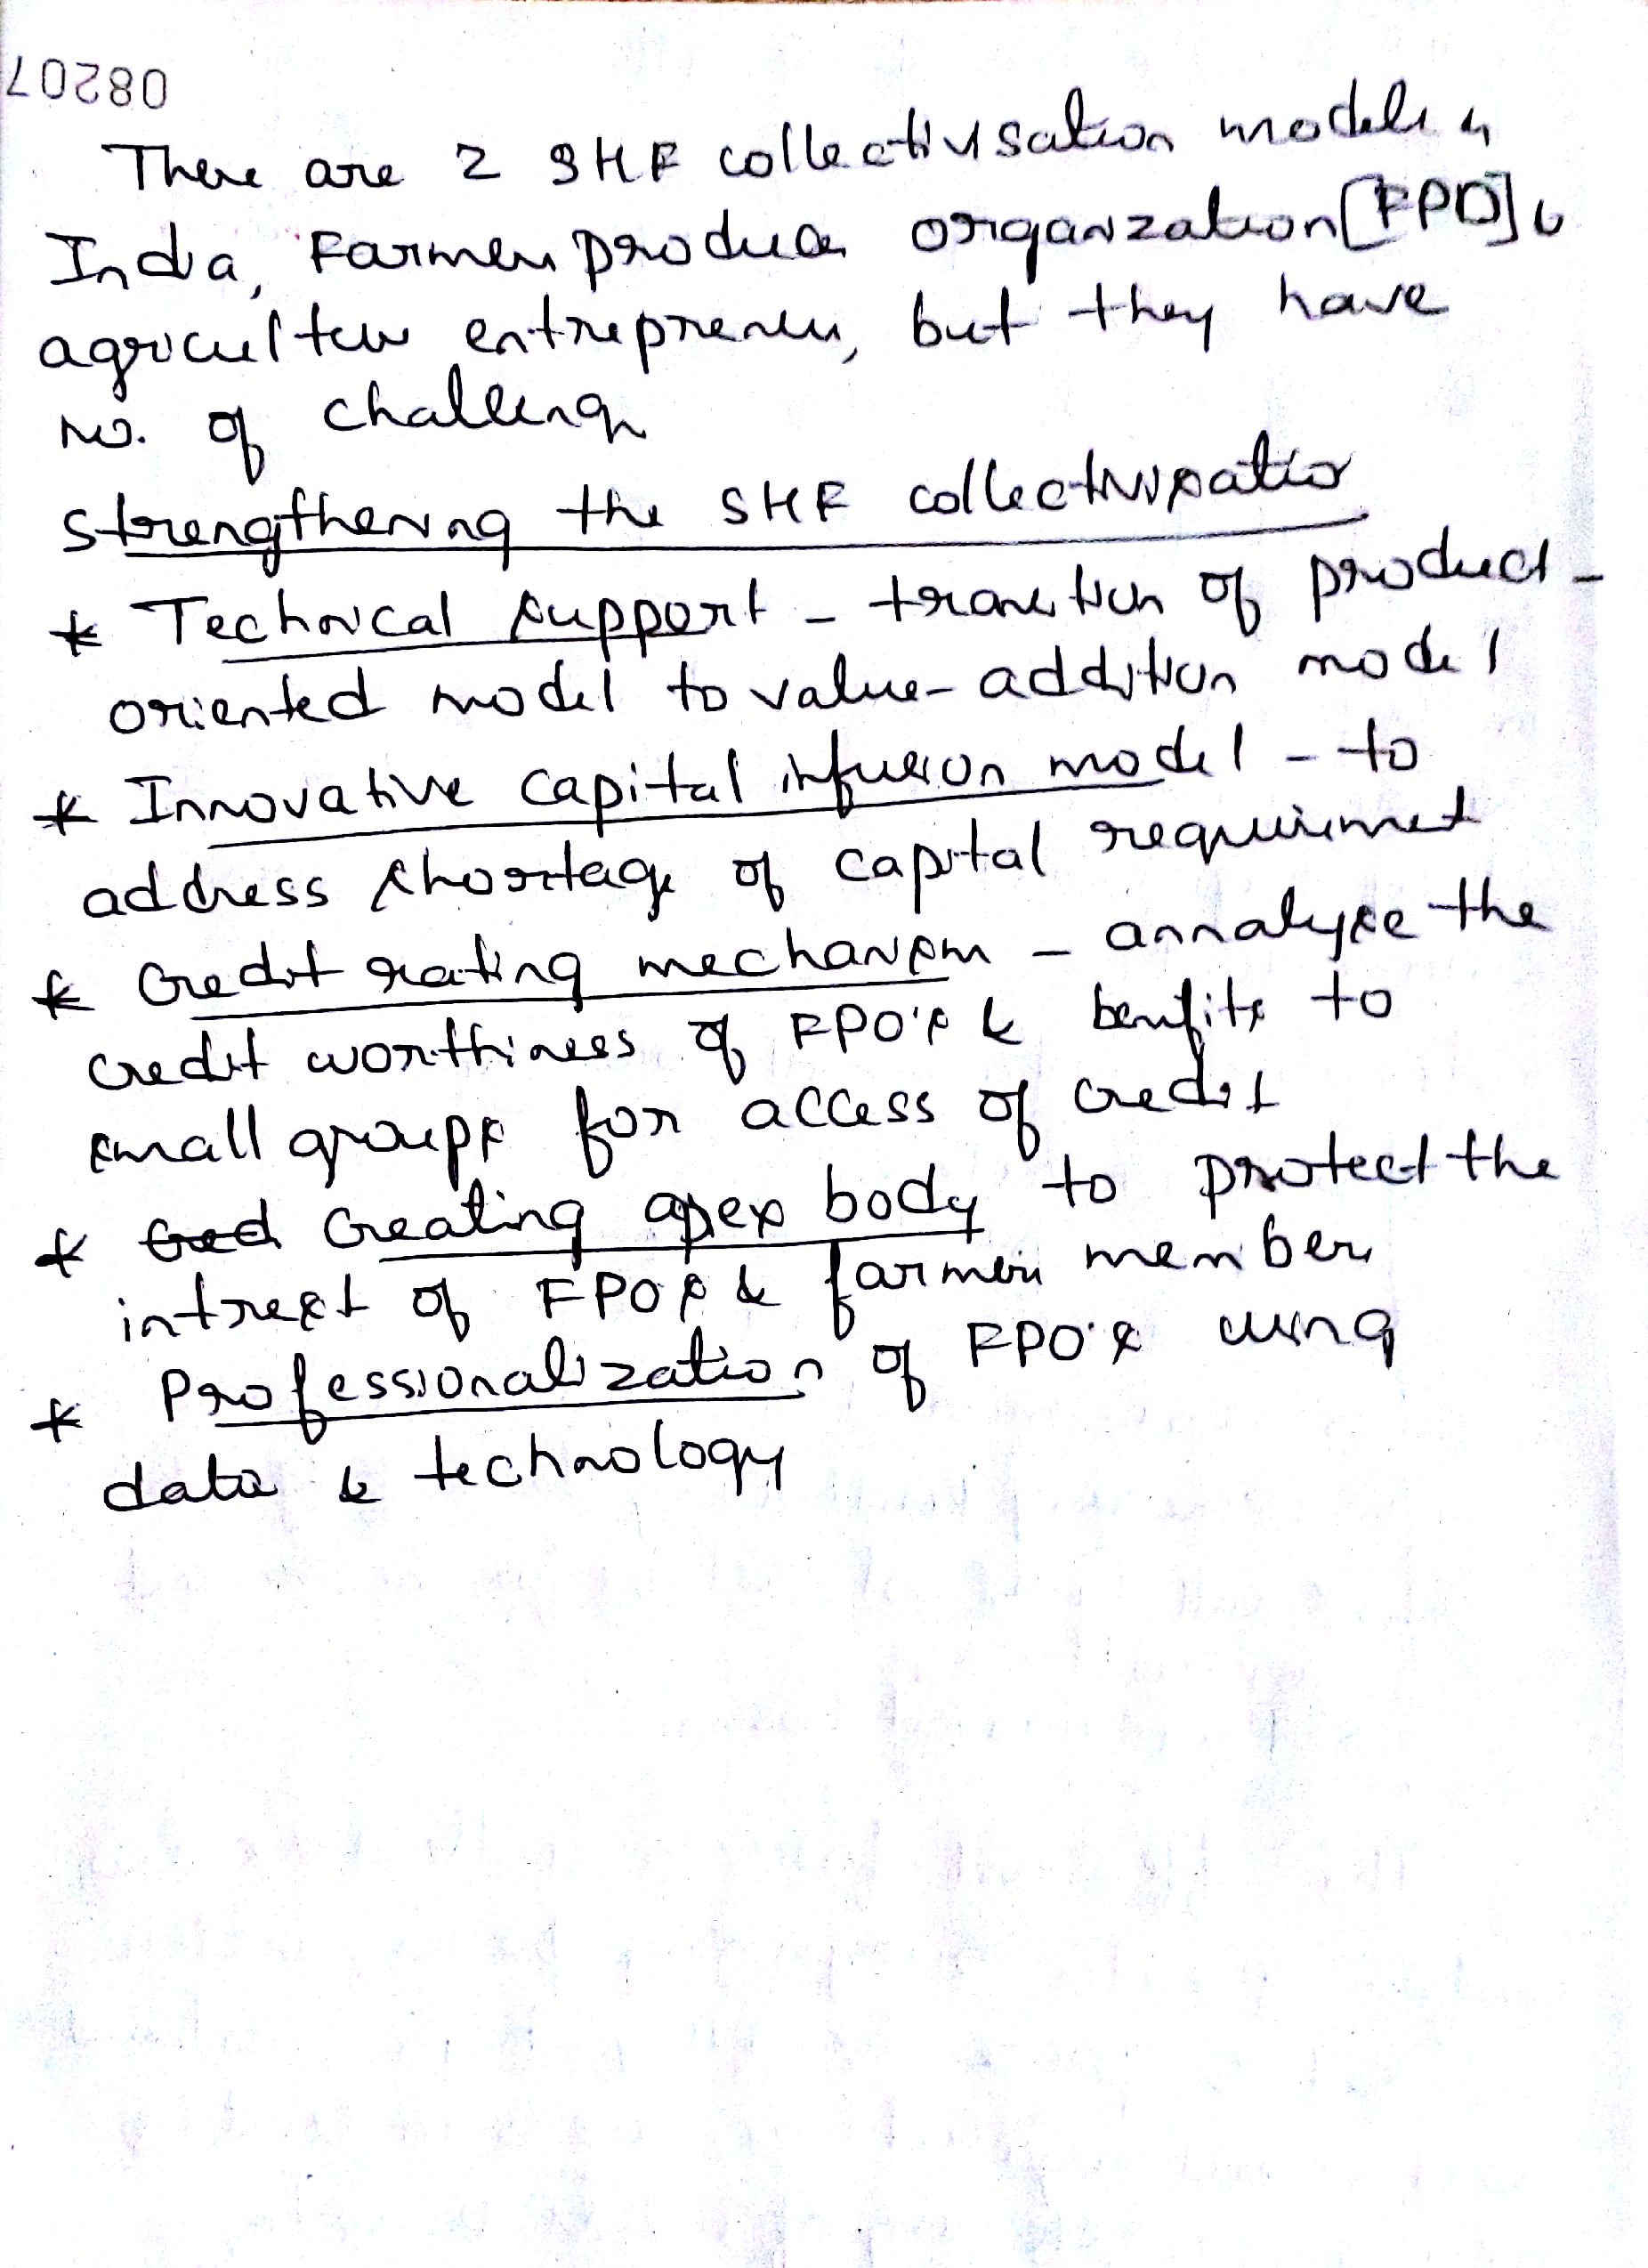 08207
There are 2 SHF collectivisation models in
India, Farmer produce organization [FPO] &
agriculture entrepreneur, but they have
no. of challenge
Strengthening the SHF collectivisation
* Technical support - transition of product-
oriented model to value-addition model
* Innovative capital infusion model - to
address shortage of capital requirement
* Credit rating mechanism - annalyse the
credit worthiness of FPO's & benifits to
small groups for access of credit
* Cred Creating apex body to protect the
intrest of FPOs & farmers members
* Professionalization of FPO's using
data & technology